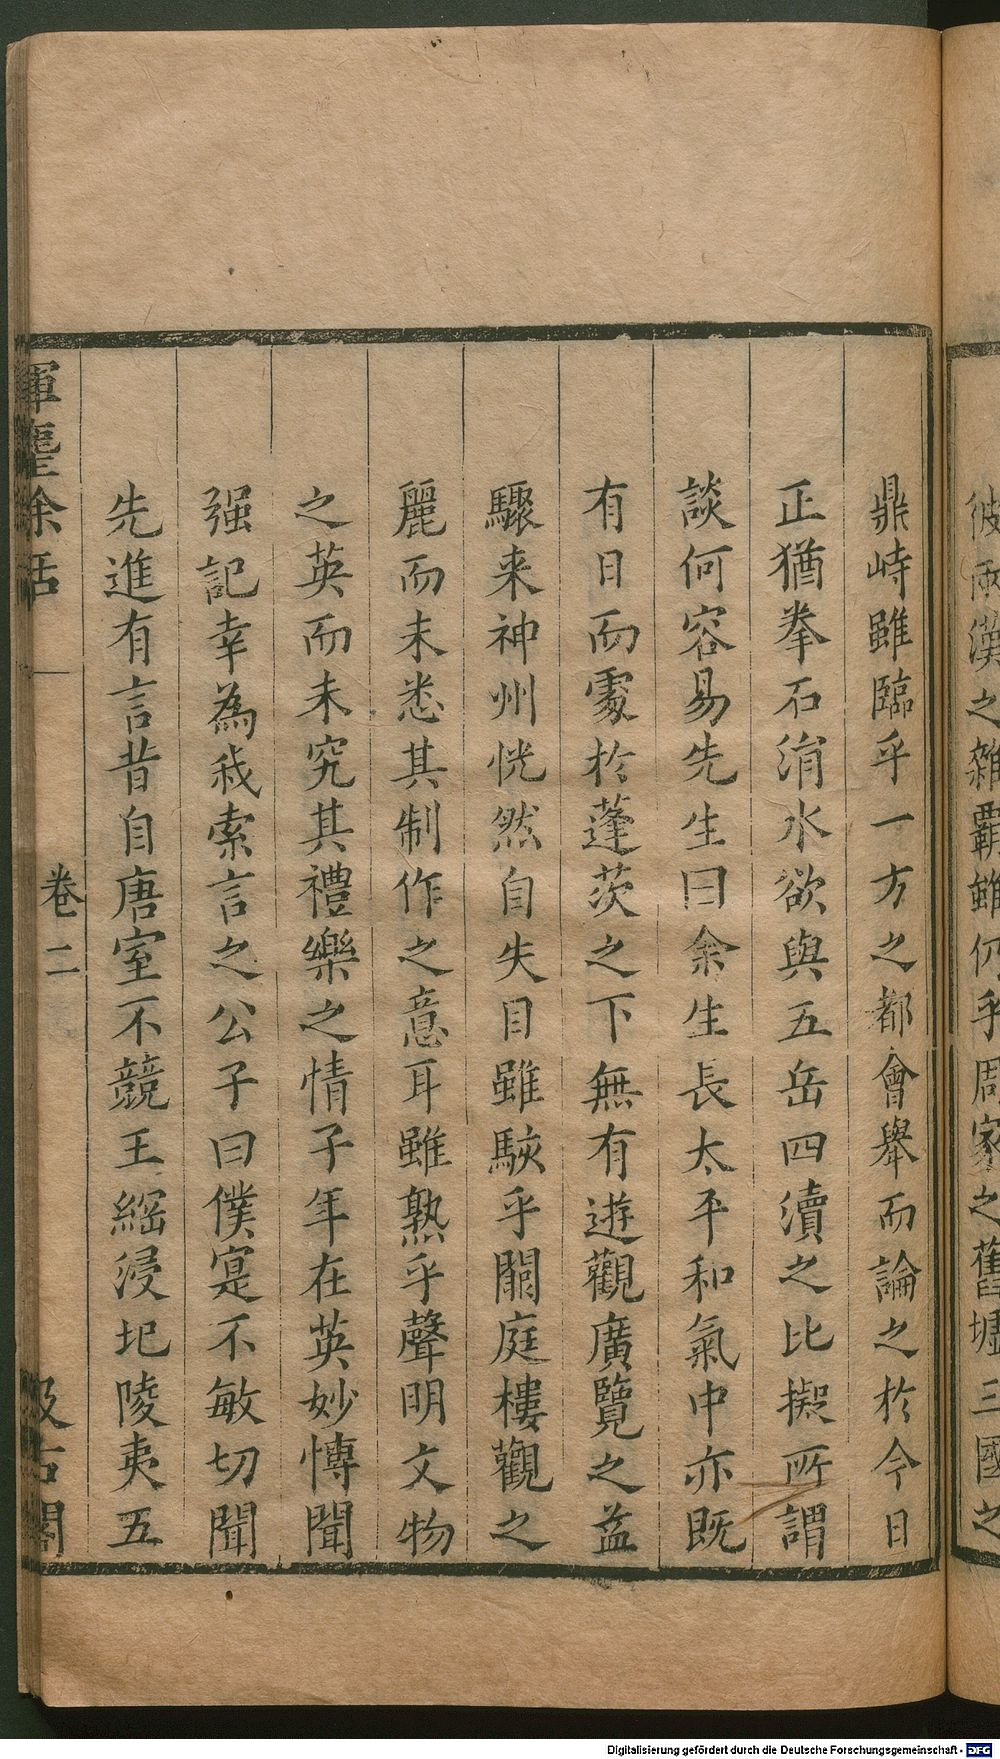 彼兩漢之雜覇雖仍乎周家之舊墟三國之
鼎峙雖臨乎一方之都會舉而論之於今日
正猶拳石涓水欲與五岳四瀆之比擬所謂
談何容易先生曰余生長太平和氣中亦既
有日而處於蓬茨之下無有遊觀廣覽之益
驟来神州恍然自失目雖駭乎闕庭樓觀之
麗而未悉其制作之意耳雖熟乎聲明文物
之英而未究其禮樂之情子年在英妙博聞
强記幸為我索言之公子曰僕寔不敏切聞
先進有言昔自唐室不競王綱浸圮陵夷五
揮麈余話
卷二
汲古閣
Digitalisierung gefördert durch die Deutsche Forschungsgemeinschaft - DFG